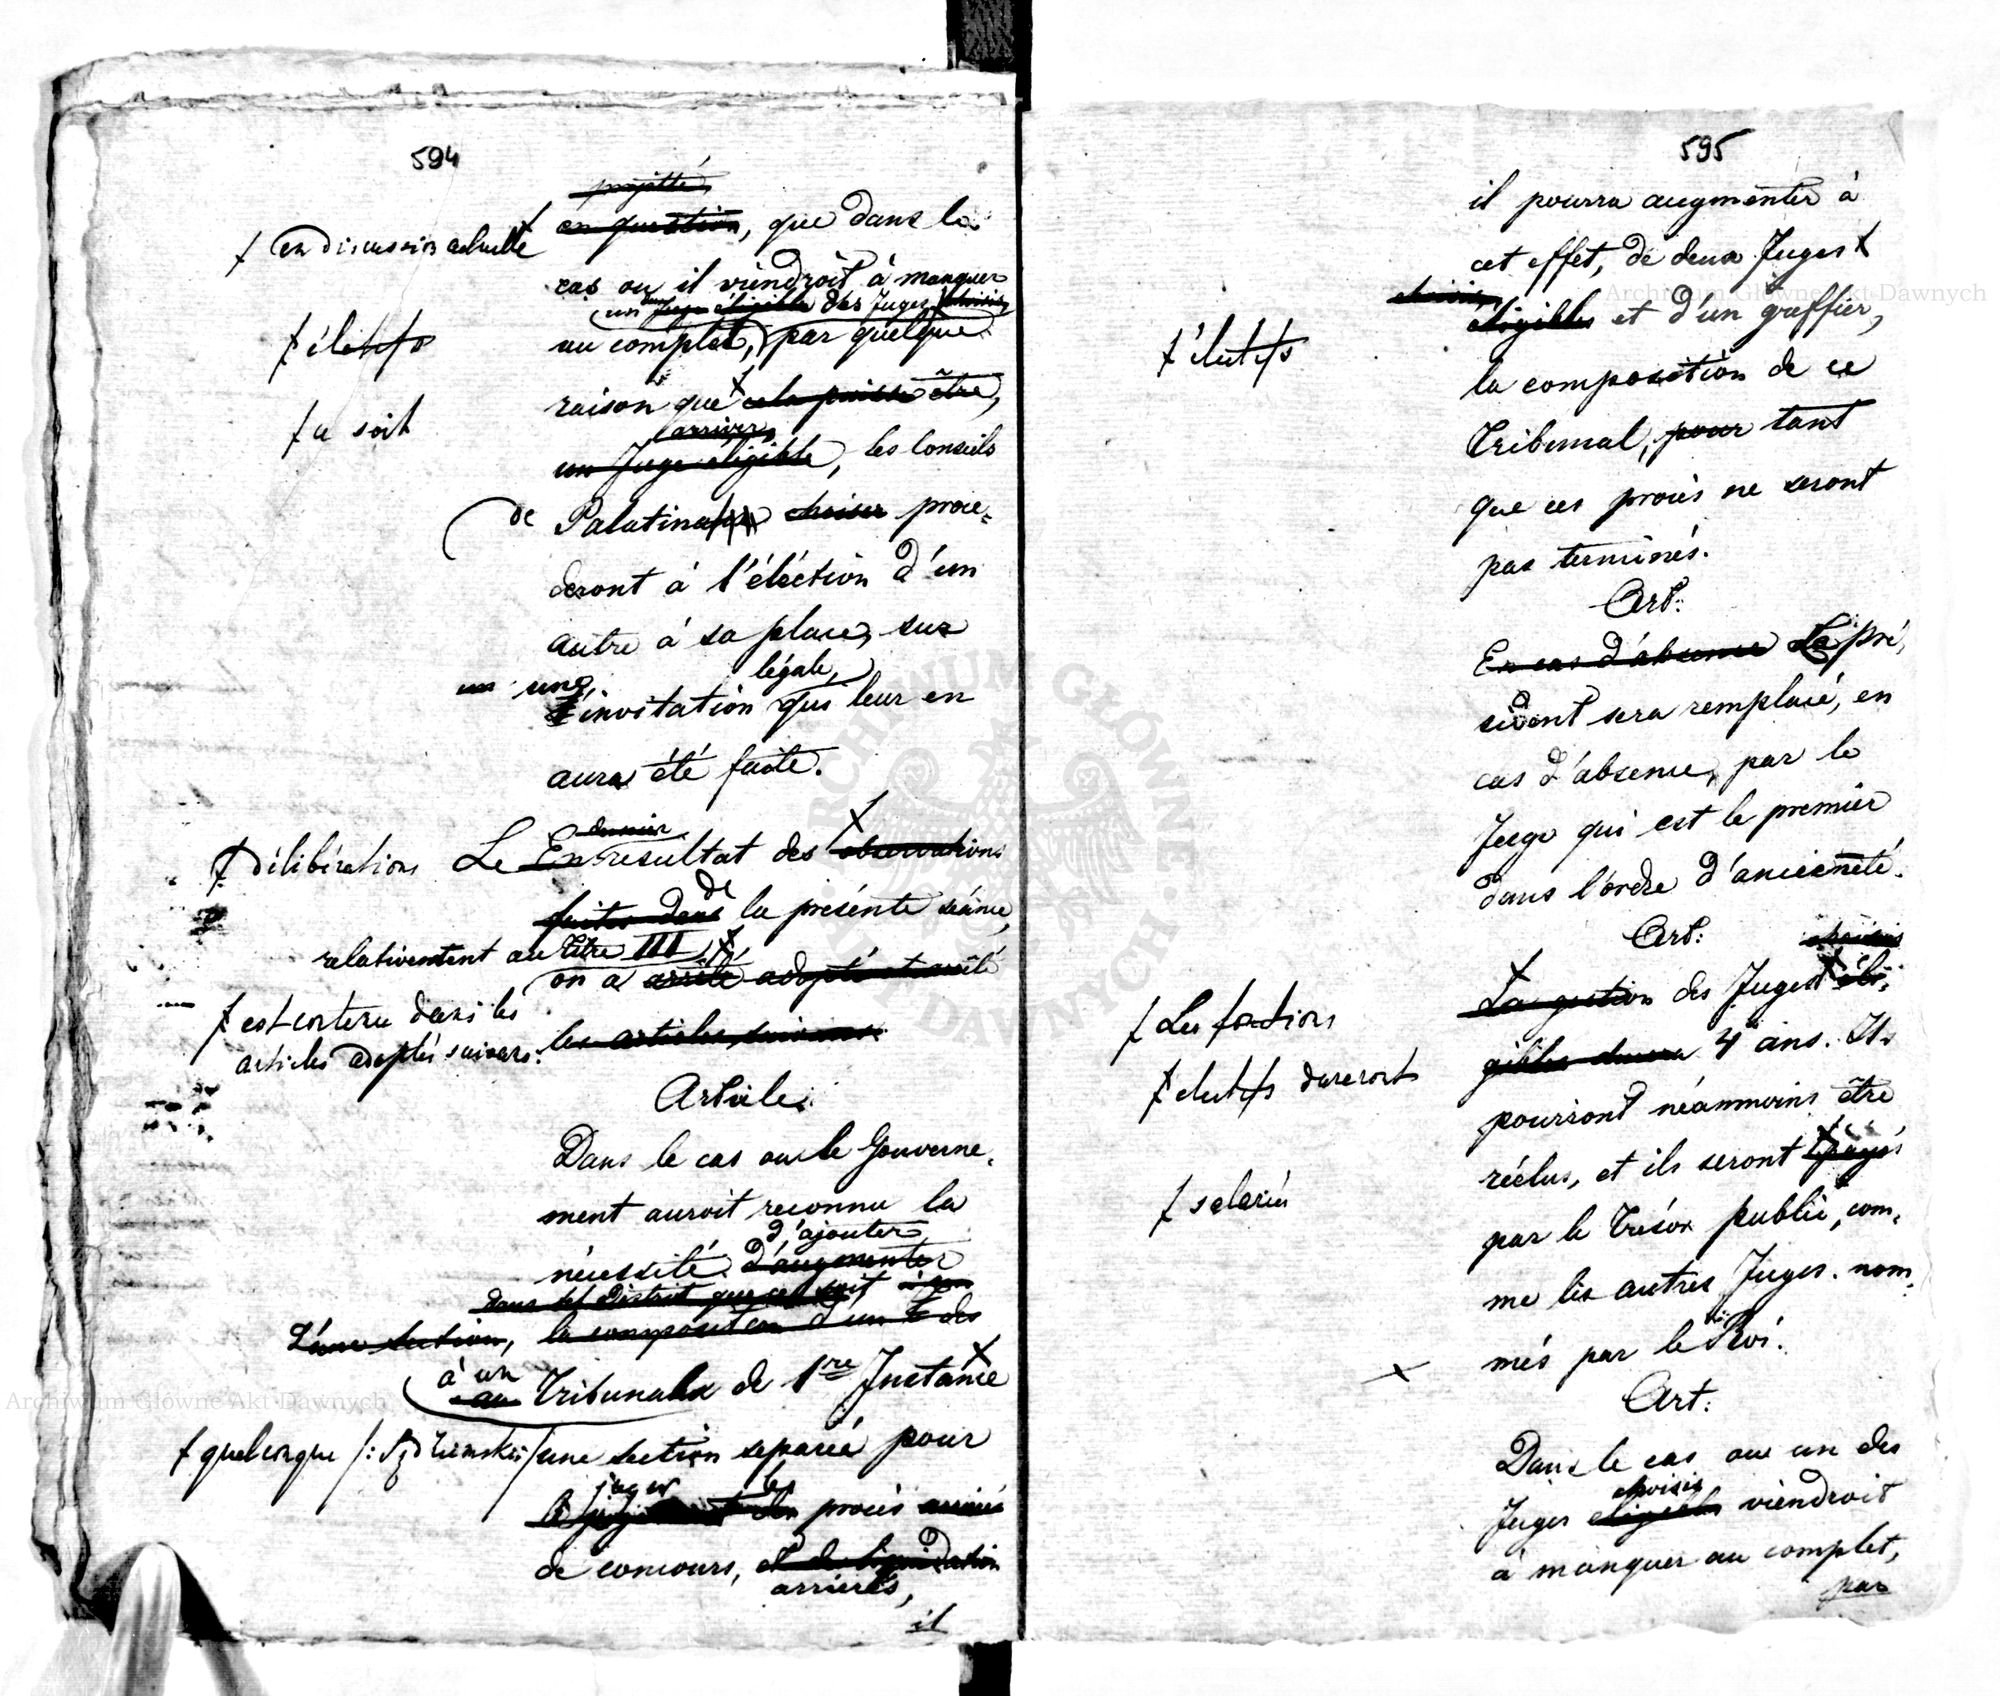 594
projetté
en question, que dans le
ƚ en discussion actuelle
cas ou il viendroit à manquer
un des Juge éligible des Juges choisis
au complet, par quelque
ƚ électifs
raison que cela puisse être,
ƚ ce soit
arriver,
un Juge eligible, les Conseils
de Palatinats choisir proce=
deront à l'élection d'un
autre à sa place, sur
légale,
un une
l'invitation qui leur en
aura été faite.
dernier
Le En resultat des observations
ƚ délibérations
faites dans de la présente séance,
relativement au titre III,
on a arrêté adopté et arrêté
ƚ est contenu dans les
articles adoptés suivans:
les articles suivans:
Article.
Dans le cas ou le Gouverne-
ment auroit reconnu la
d'ajouter
nécessité d'augmenter
dans tel District que ce soit à un
d'une section, la composition d'un des
à un
au Tribunaux de 1re Instance
ƚ quelconque /: Sądziemskie/ une section separée pour
juger les
le jugement des procès arriérés
de concours, et de liquidation
arriérés,
il
595
il pourra augmenter à
cet effet, de deux Juges
choisis
éligibles et d'un greffier,
ƚ électifs
la composition de ce
Tribunal, pour tant
que ces procès ne seront
pas terminés.
Art:
En cas d'absence Le pré-
sident sera remplacé, en
cas d'absence, par le
Juge qui est le premier
dans l'ordre d'ancienneté.
Art:
choisis
La gestion des Juges éli-
ƚ Les fonctions
gibles durera 4 ans. Ils
ƚ électifs dureront
pourront néanmoins être
réélus, et ils seront payés
ƚ salariés
par le Trésor public, com-
me les autres Juges nom-
més par le Roi.
Art:
Dans le cas ou un des
choisis
Juges eligibles viendroit
à manquer au complet,
par
Archiwum Główne Akt Dawnych
Archiwum Główne Akt Dawnych
ARCHIWUM GŁÓWNE AKT DAWNYCH